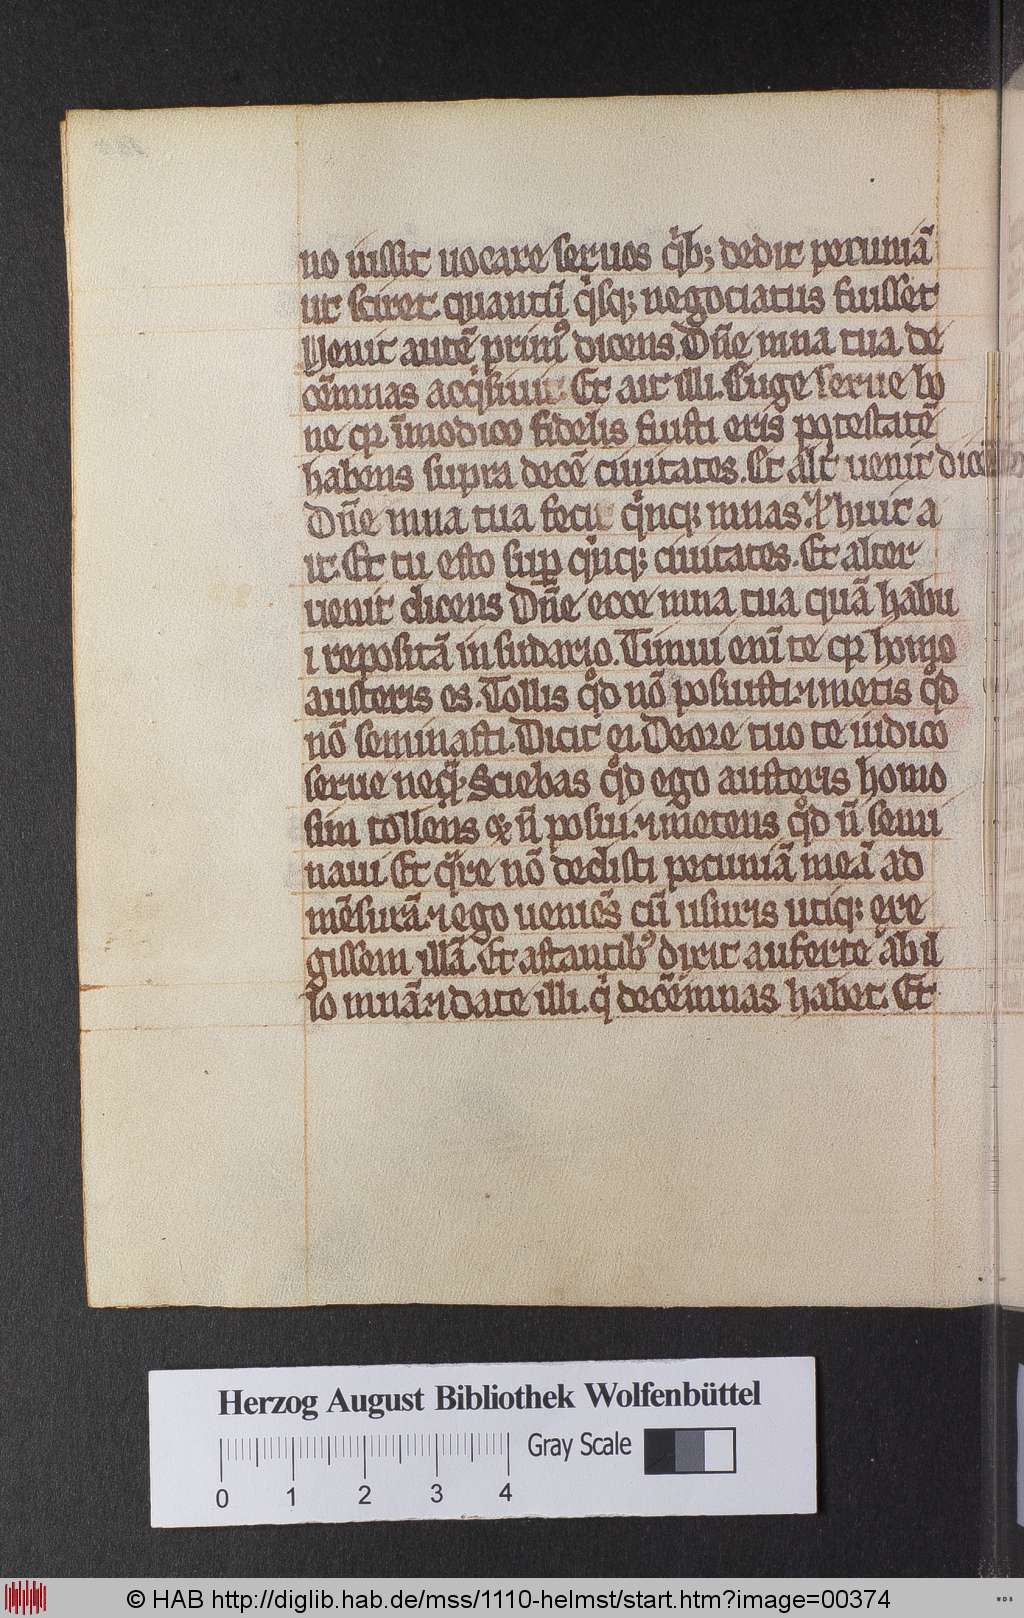 no iussit uocare seruos q̇b; dedit pecuniā
ut sciret quantū q̇sq; negociatus fuisset
Venit autē prim⁹ dicens. Dn̄e mna tua de
cē mnas acq̇siuit. Et ait illi. Euge serue bo
ne qr̄ ī modico fidelis fuisti eris potestatē
habens supra decē ciuitates. Et alt̄ uenit
Dn̄e mna tua fecit q̇nq; mnas. ⁊ huic a
it. Et tu esto suꝑ q̇nq; ciuitates. Et alter
uenit dicens Dn̄e ecce mna tua quā habu
i repositā in sudario. Timui enī te qr̄ homo
austeris es. Tollis qͦd nō posuisti. ⁊ metis qͦd
nō seminasti. Dicit ei. De ore tuo te iudico
serue neq̄. Sciebas qͦd ego austeris homo
sum tollens qͦd n̄ posui. ⁊ metens qͦd n̄ semi
naui Et qͣre nō dedisti pecuniā meā ad
mēsurā. ⁊ ego ueniēs cū usuris utiq; exe
gissem illā. Et astantib⁹ dixit auferte ab il
lo mnā. ⁊ date illi. q̇ decē mnas habet. Et
Herzog August Bibliothek Wolfenbüttel
Gray Scale
0 1 2 3 4
© HAB http://diglib.hab.de/mss/1110-helmst/start.htm?image=00374